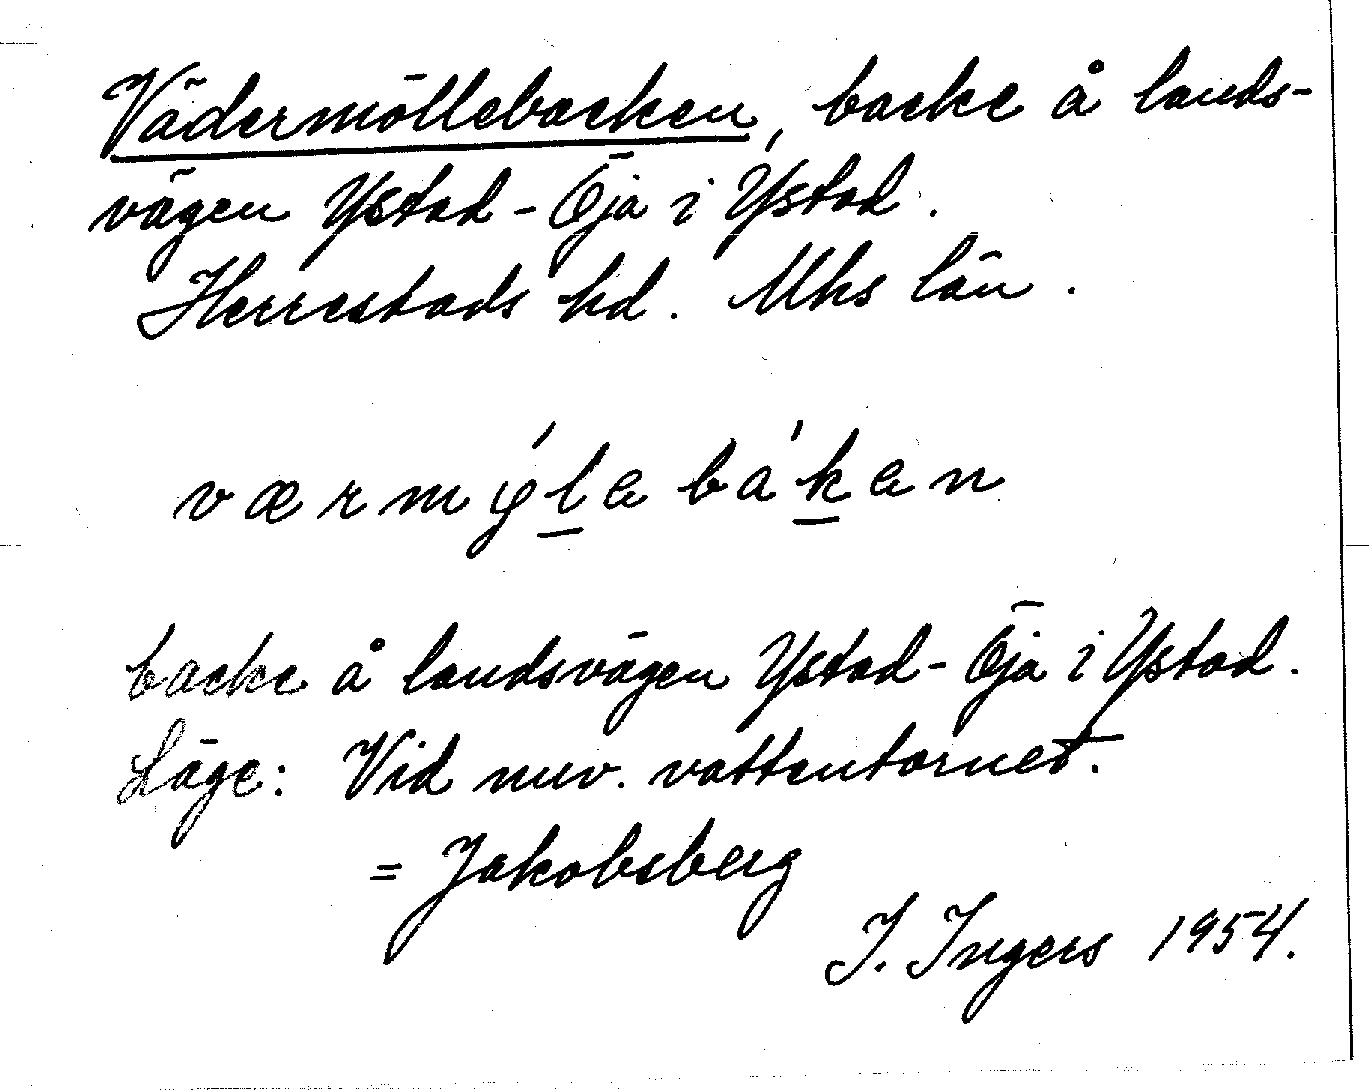 Vädermöllebacken, backe å lands-
vägen Ystad - Öja i Ystad.
Herrestads hd. Mhs län.
værmýlebákan
backe å landsvägen Ystad - Öja i Ystad.
Läge: Vid nuv. vattentornet.
= Jakobsberg
I. Ingers 1954.